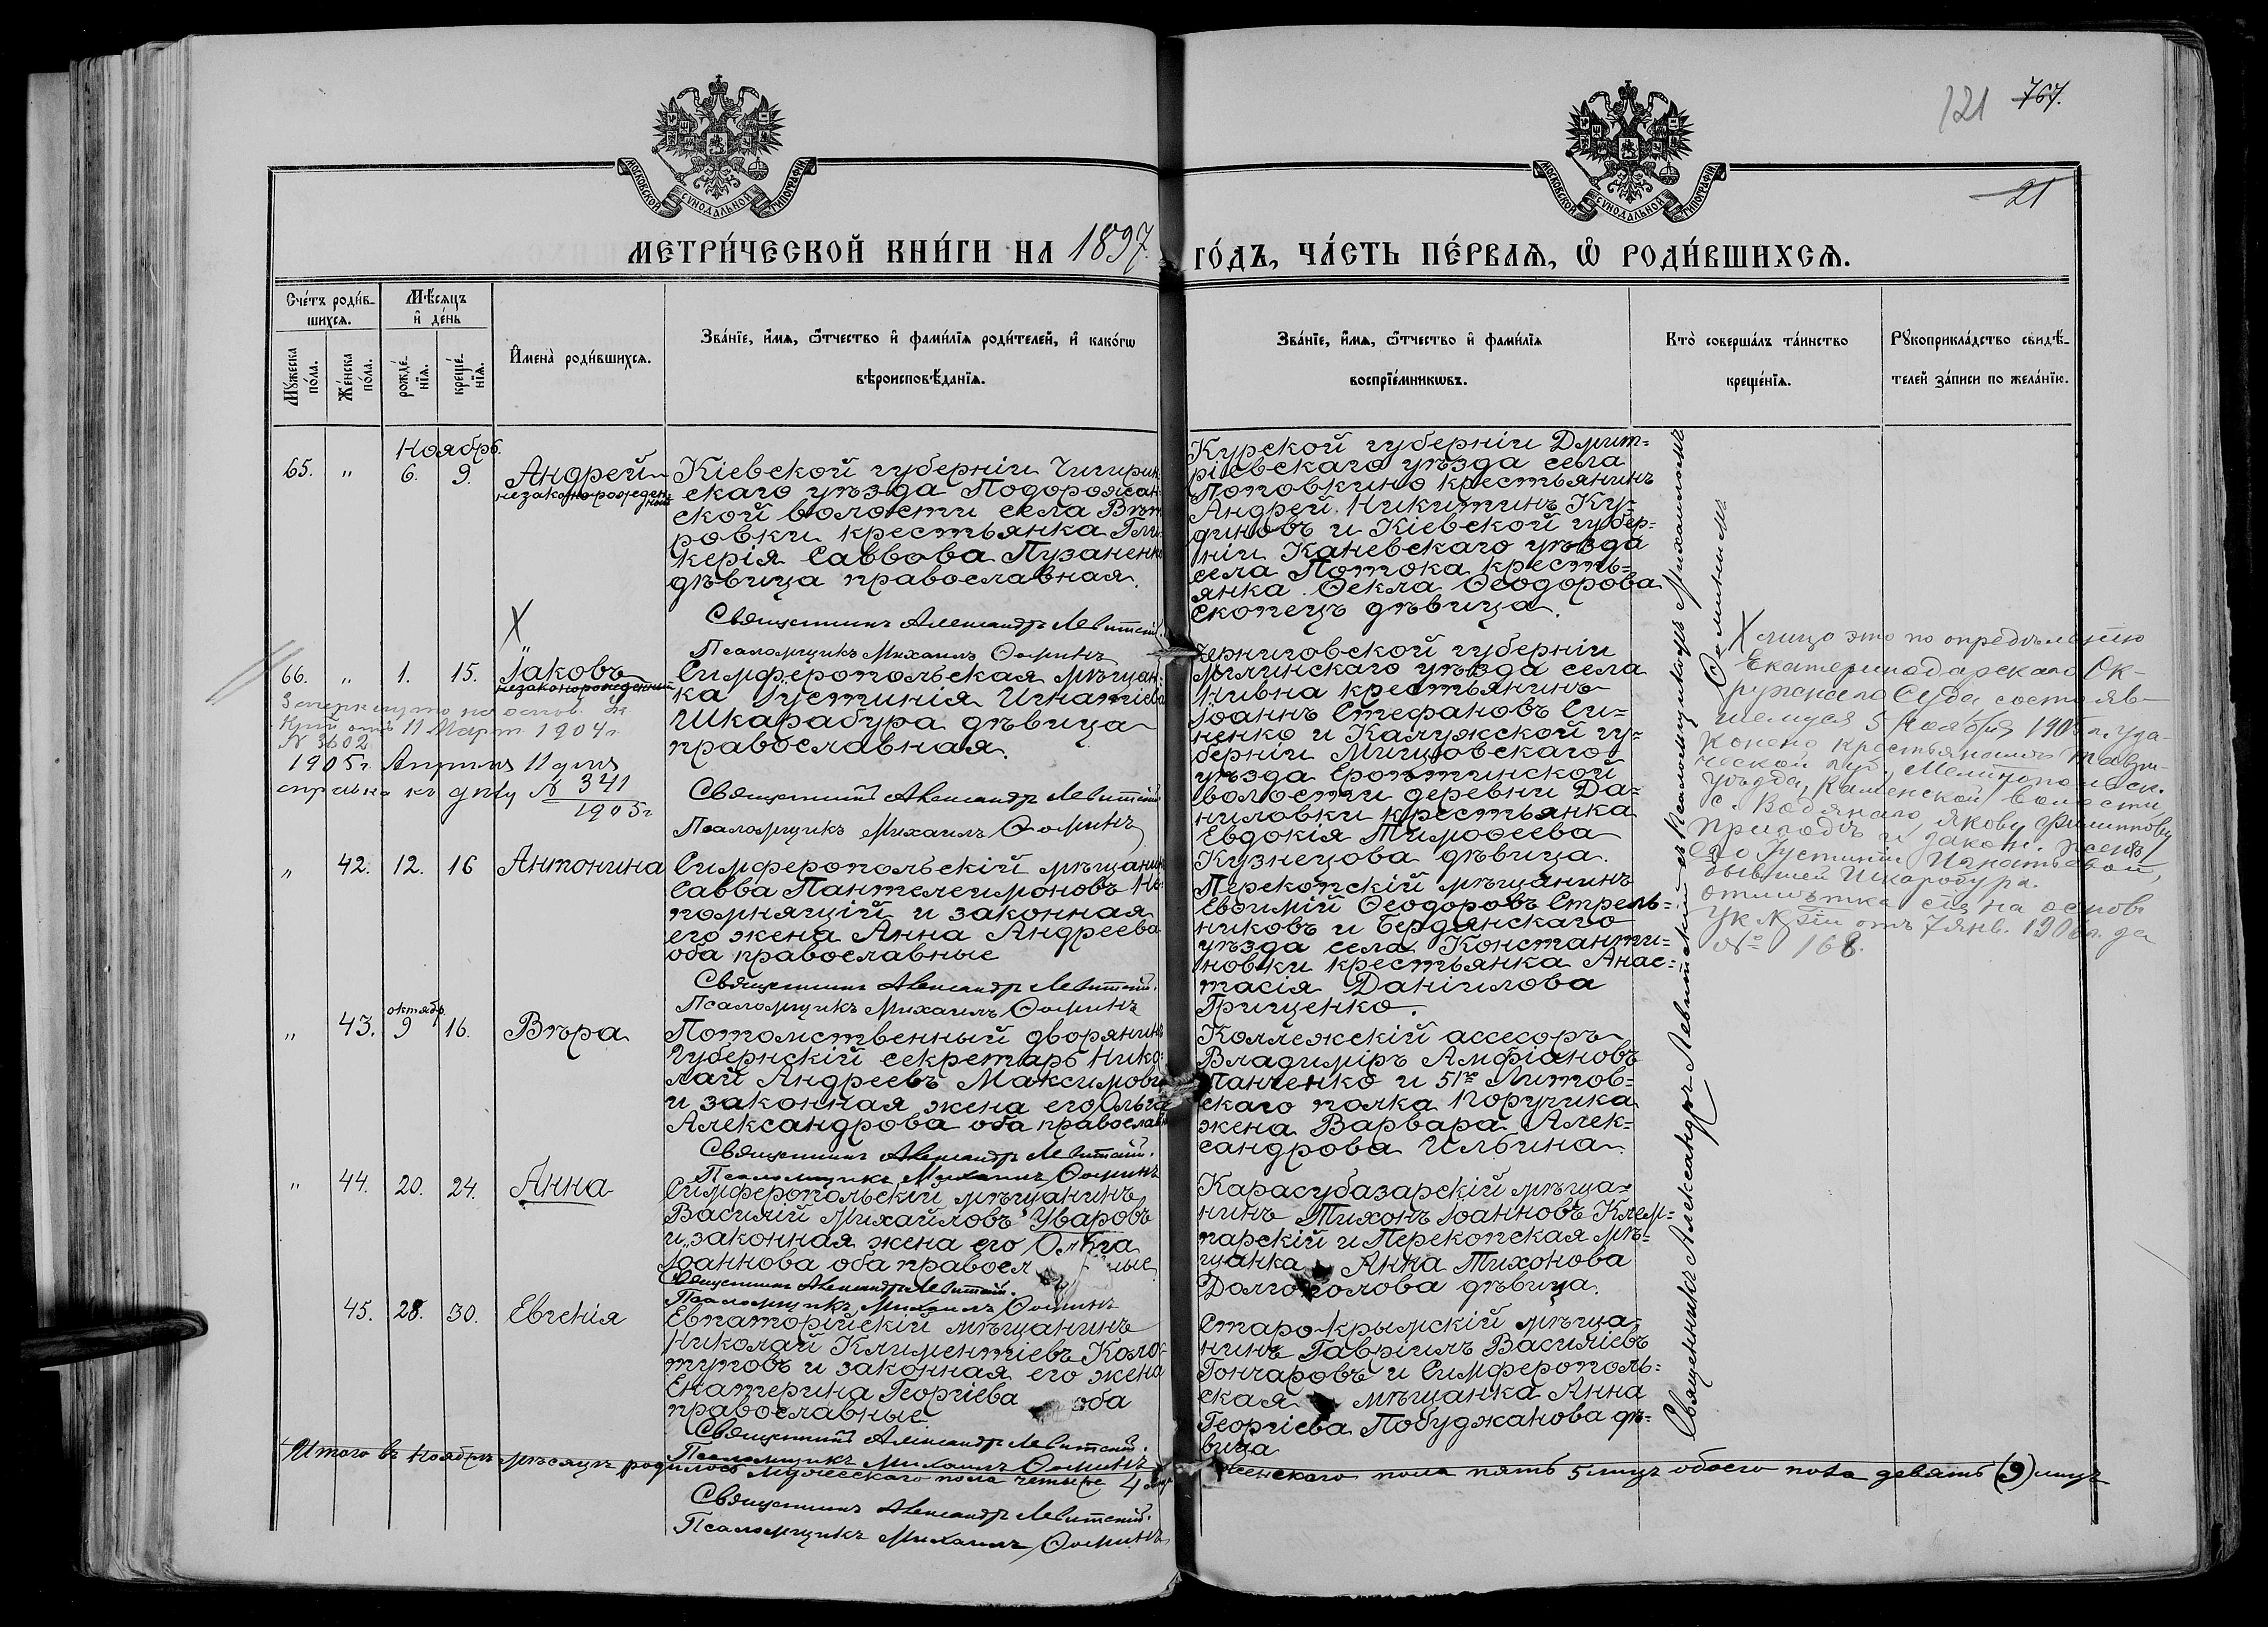 121 767.
21
МОСКОВСКОЙ СУНОДАЛЬНОЙ ТИПОГРАФІИ
МОСКОВСКОЙ СУНОДАЛЬНОЙ ТИПОГРАФІИ
МЕТРИ́ЧЕСКОЙ КНИ́ГИ НА 1897. ГО́ДЪ, ЧА́СТЬ ПЕ́РВАѦ, Ѡ҆ РОДИ́ВШИХСѦ.
Сче́тъ роди́в-
шихсѧ.
Мꙋ́жеска
по́ла.
Же́нска
по́ла.
Мѣ́сѧцъ
и҆ де́нь
рожде́-
нїѧ.
креще́-
нїѧ.
И҆мена̀ роди́вшихсѧ.
Зва́нїе, и҆́мѧ, ѻ҆́тчество и҆ фами́лїѧ роди́телей, и҆ како́гѡ
вѣроисповѣ́данїѧ.
Зва́нїе, и҆́мѧ, ѻ҆́тчество и҆ фами́лїѧ
воспрїе́мникѡвъ.
Кто̀ соверша́лъ та́инство
креще́нїѧ.
Рꙋкоприкла́дство свидѣ́-
телей за́писи по жела́нїю.
Ноябрь.
65. " 6. 9. Андрей
незаконорожден-
ный
Кіевской губерніи Чигирин
скаго уѣзда Подорожан
ской волости села Вѣт
ровки крестьянка Гли
керія Саввова Пузаненко
дѣвица православная.
Священникъ Александръ Левитскій.
Псаломщикъ Михаилъ Ѳоминъ
Курской губерніи Дмит=
ріевскаго уѣзда села
Поповкино крестьянинъ
Андрей Никитинъ Ку-
диновъ и Кіевской губер=
ніи Каневскаго уѣзда
села Потока кресть=
янка Ѳекла Ѳеодорова
Скопецъ дѣвица.
X
66. " 1. 15. Іаковъ
незаконорожденный
Зачеркнуто на основ. Ук.
11 Март 1904 г.
N 3602
1905 г. Апрѣля 11 дня
справка къ дѣлу N 341
1905 г
Симферопольская мѣщан-
ка Іустинія Игнатіева
Шкарабура дѣвица
православная.
Священникъ Александръ Левитскій
Псаломщикъ Михаилъ Ѳоминъ
Черниговской губерніи
Мглинскаго уѣзда села
Нивна крестьянинъ
Іоаннъ Стефановъ Си=
ненко и Калужской гу=
берніи Мищовскаго
уѣзда
волости деревни Да=
ниловки крестьянка
Евдокія Тимоѳеева
Кузнецова дѣвица.
X лицо это по опредѣленію
Екатеринодарскаго Ок-
ружнаго Суда, состояв-
шемуся 5 Ноября 1905 г. уза-
конено крестьянамъ Таври-
ческой губ., Мелитопольск.
уѣзда, Каменской волости,
с. Водянаго, Якову Филиппову
Приподѣ и законн. женѣ
его Іустиніи Игнатьевой,
бывшей Шкарабура.
отмѣтка сія на основ.
Ук отъ 7 янв. 1906 г. за
№ 168.
" 42. 12. 16 Антонина
Симферопольскій мѣщанинъ
Савва Пантелеимоновъ Не-
помнящій и законная
его жена Анна Андреева
оба православные
Священникъ Александръ Левитскій.
Псаломщикъ Михаилъ Ѳоминъ
Перекопскій мѣщанинъ
Евѳимій Ѳеодоровъ Стрель=
никовъ и Бердянскаго
уѣзда села Константи=
новки крестьянка Анас=
тасія Даніилова
Грищенко.
октябр.
" 43. 9 16. Вѣра
Потомственный дворянинъ
Губернскій секретарь Нико-
лай Андреевъ Максимовъ
и законная жена его Ольга
Александрова оба православные
Священникъ Александръ Левитскій.
Псаломщикъ Михаилъ Ѳоминъ
Коллежскій ассесоръ
Владиміръ Амфіановъ
Панченко и 51го Литов=
скаго полка Поручика
жена Варвара Алек=
сандрова Ильина.
" 44. 20. 24. Анна
Симферопольскій мѣщанинъ
Василій Михайловъ Уваровъ
и законная жена его Ольга
Іоаннова оба правосл ные
Священникъ Александръ Левитскій.
Псаломщикъ Михаилъ Ѳоминъ
Карасубазарскій мѣща=
нинъ Тихонъ Іоанновъ Клем=
парскій и Перекопская мѣ-
щанка Анна Тихонова
Долгополова дѣвица.
45. 28. 30. Евгенія
Евпаторійскій мѣщанинъ
Николай Климентіевъ Коло-
туповъ и законная его жена
Екатерина Георгіева оба
православные.
Священникъ Александръ Левитскій.
Псаломщикъ Михаилъ Ѳоминъ
Старо-Крымскій мѣща-
нинъ Гавріилъ Василіевъ
Гончаровъ и Симферополь=
ская мѣщанка Анна
Георгіева Побуджанова дѣ-
вица
Священникъ Александръ Левитскій съ Псаломщикомъ Михаиломъ
Ѳоминымъ
Итого въ Ноябрѣ мѣсяцѣ родилось мужескаго пола четыре 4 женскаго пола пять 5 лицъ обоего пола девять (9) лицъ
Священникъ Александръ Левитскій.
Псаломщикъ Михаилъ Ѳоминъ